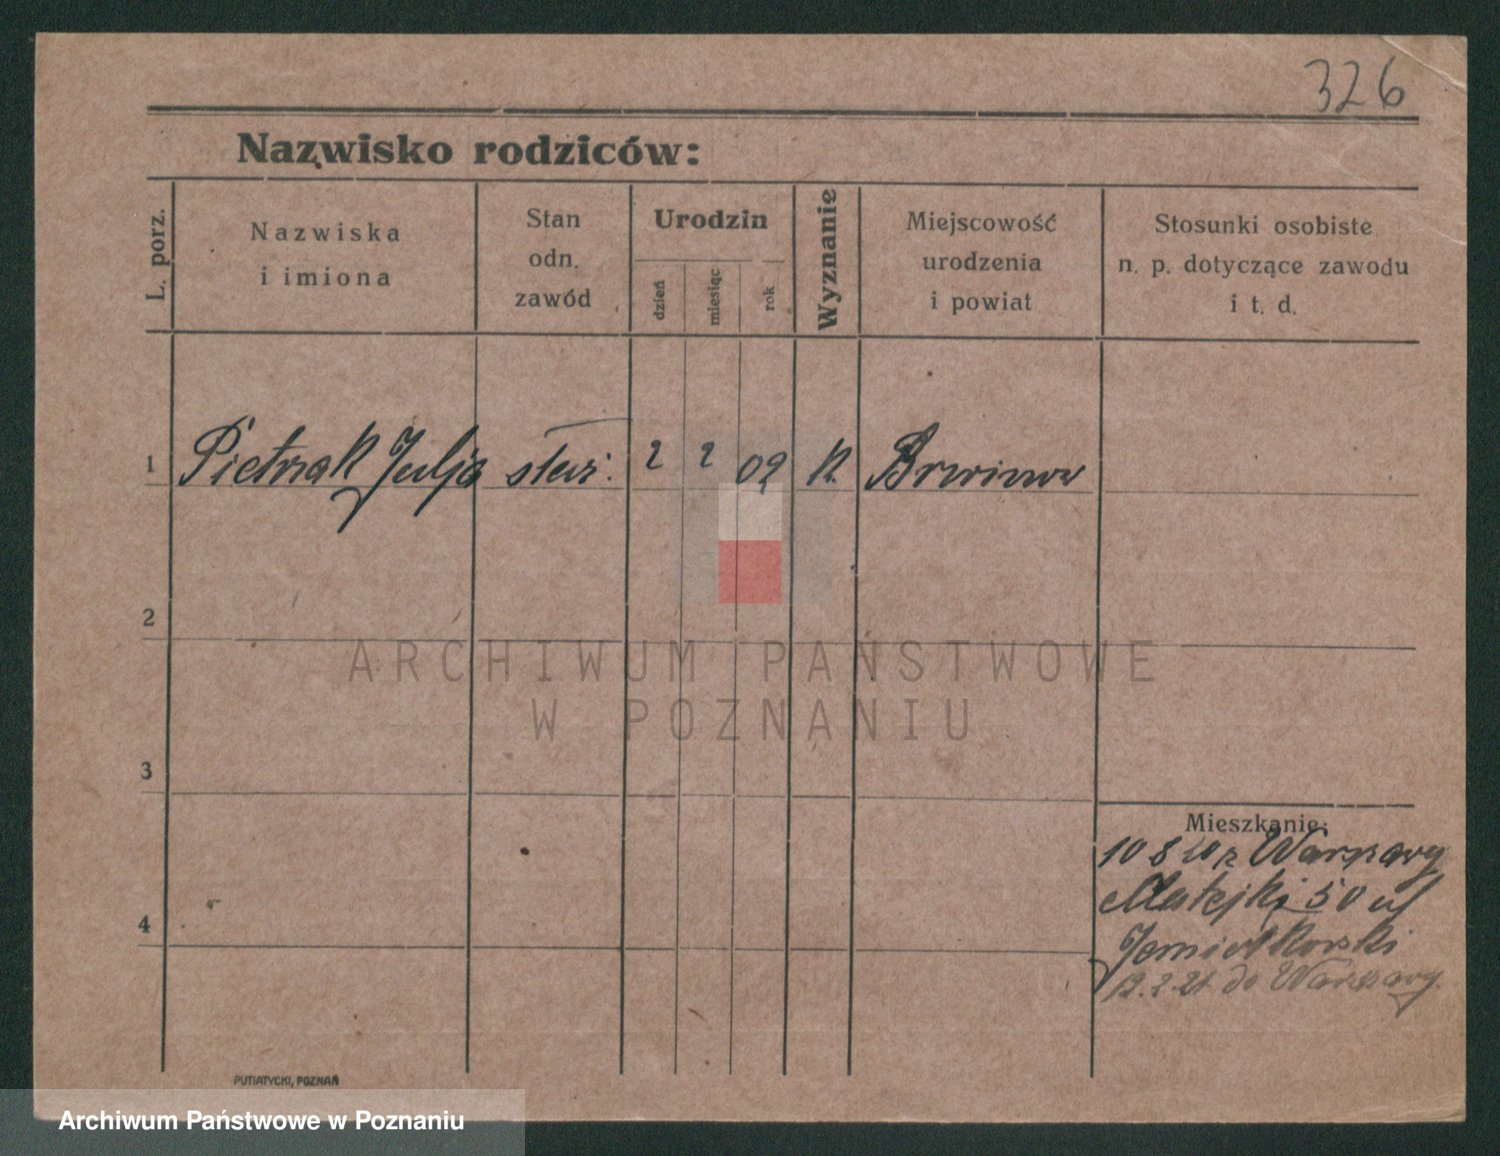 326
Nazwisko rodziców:
L. porz.
Nazwiska
i imiona
Stan
odn.
zawód
Urodzin
dzień
miesiąc
rok
Wyznanie
Miejscowość
urodzenia
i powiat
Stosunki osobiste
n. p. dotyczące zawodu
i t. d.
1 Pietrzak Julja służ. 2 2 02 k. Brwinow
2
3
4
ARCHIWUM PAŃSTWOWE
W POZNANIU
Mieszkanie:
10 8 20 z Warszawy
Matejki 50 u
12. 2 21 do Warszawy.
PUTIATYCKI, POZNAŃ
Archiwum Państwowe w Poznaniu